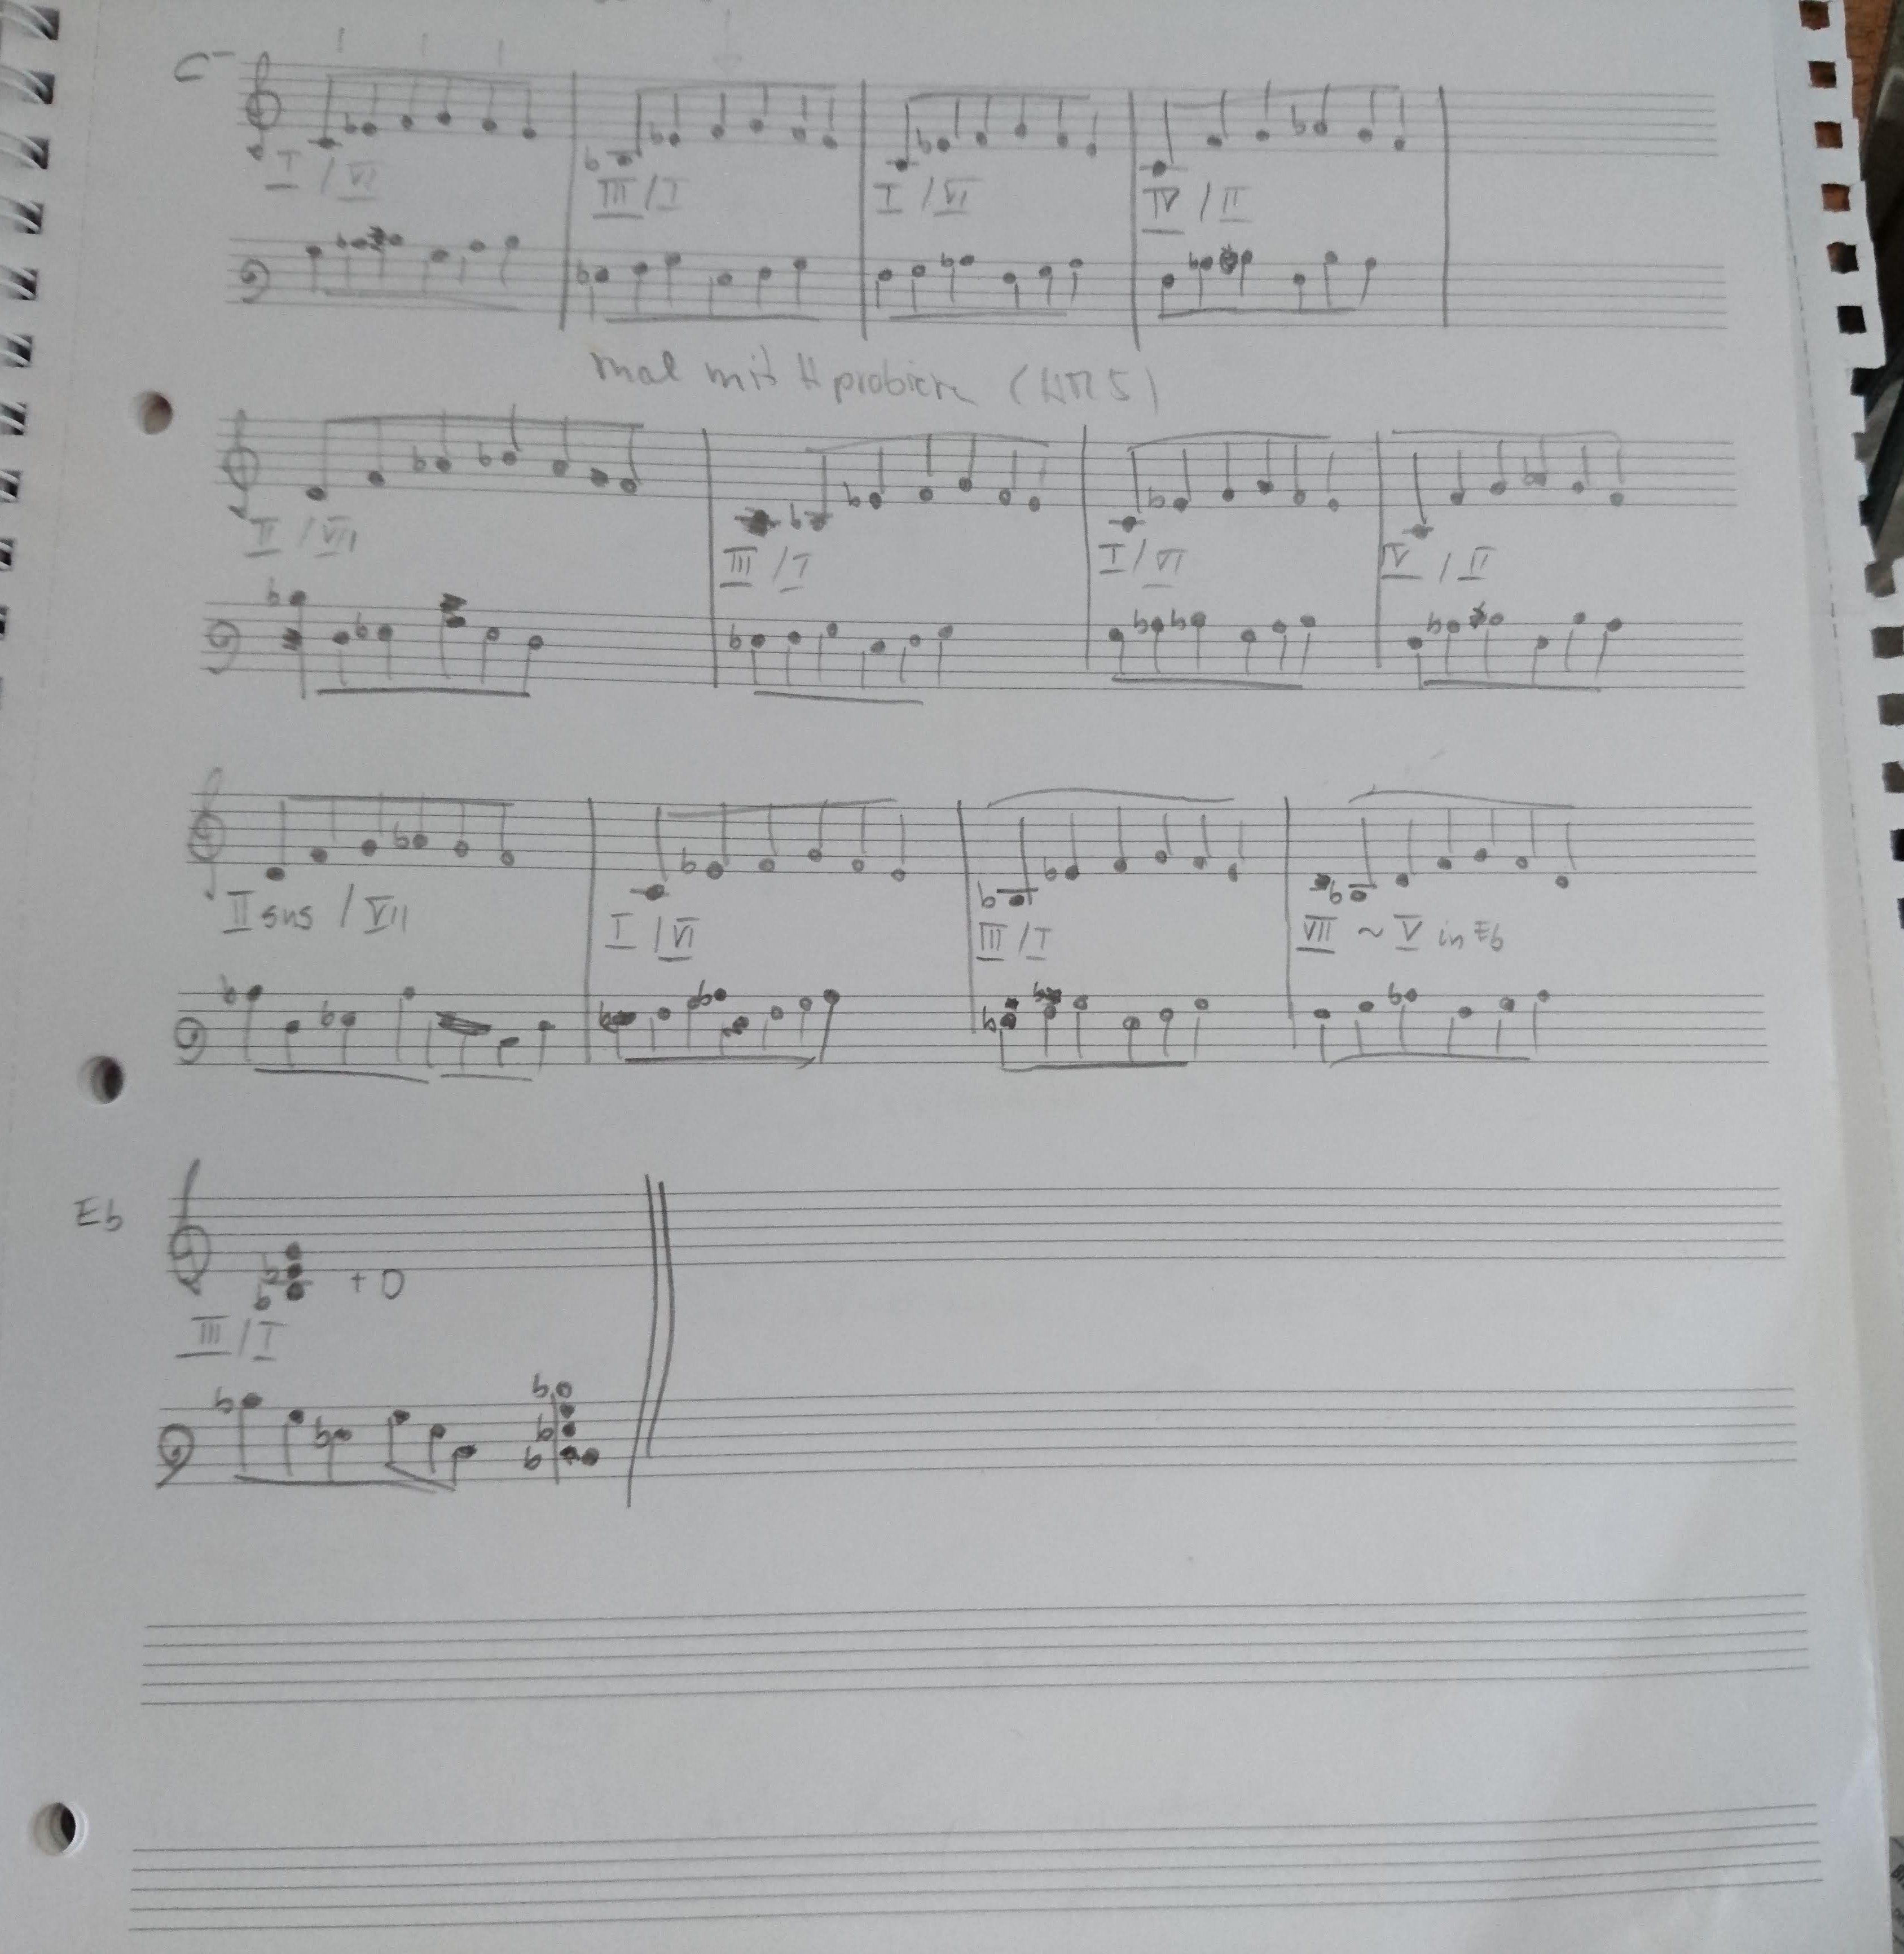 C-
I / VI III / I I / VI IV / II
mal mit H probieren (HM5)
II / VII III / I I / VI IV / II
II sus / VII I / VI III / I VII ~ V in Eb
Eb
+ D
III / I